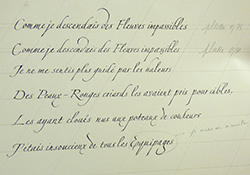 Comme je descendais des Fleuves impassibles
Comme je descendais des Fleuves impassibles
Je ne me sentis plus guidé par les haleurs
Des Peaux-Rouges criards les avaient pris pour cibles,
Les ayant cloués nus aux poteaux de couleurs
J'étais insoucieux de tous les équipages